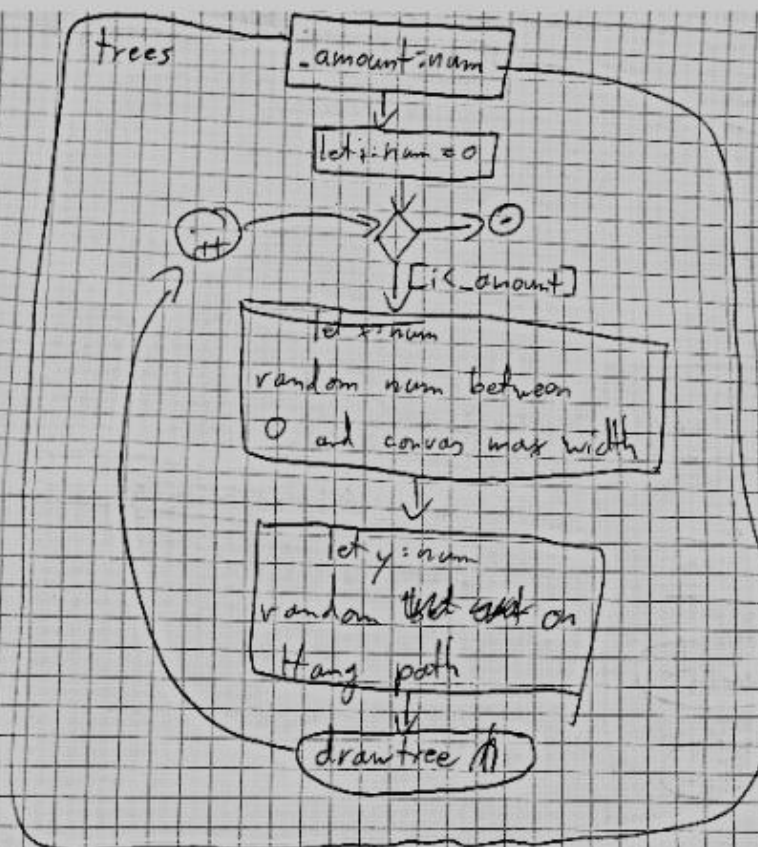 trees
_amount:num
let i:num = 0
[i<_amount]
let x:num
random num between
0 and canvas max width
let y:num
random on
Hang path
drawtree